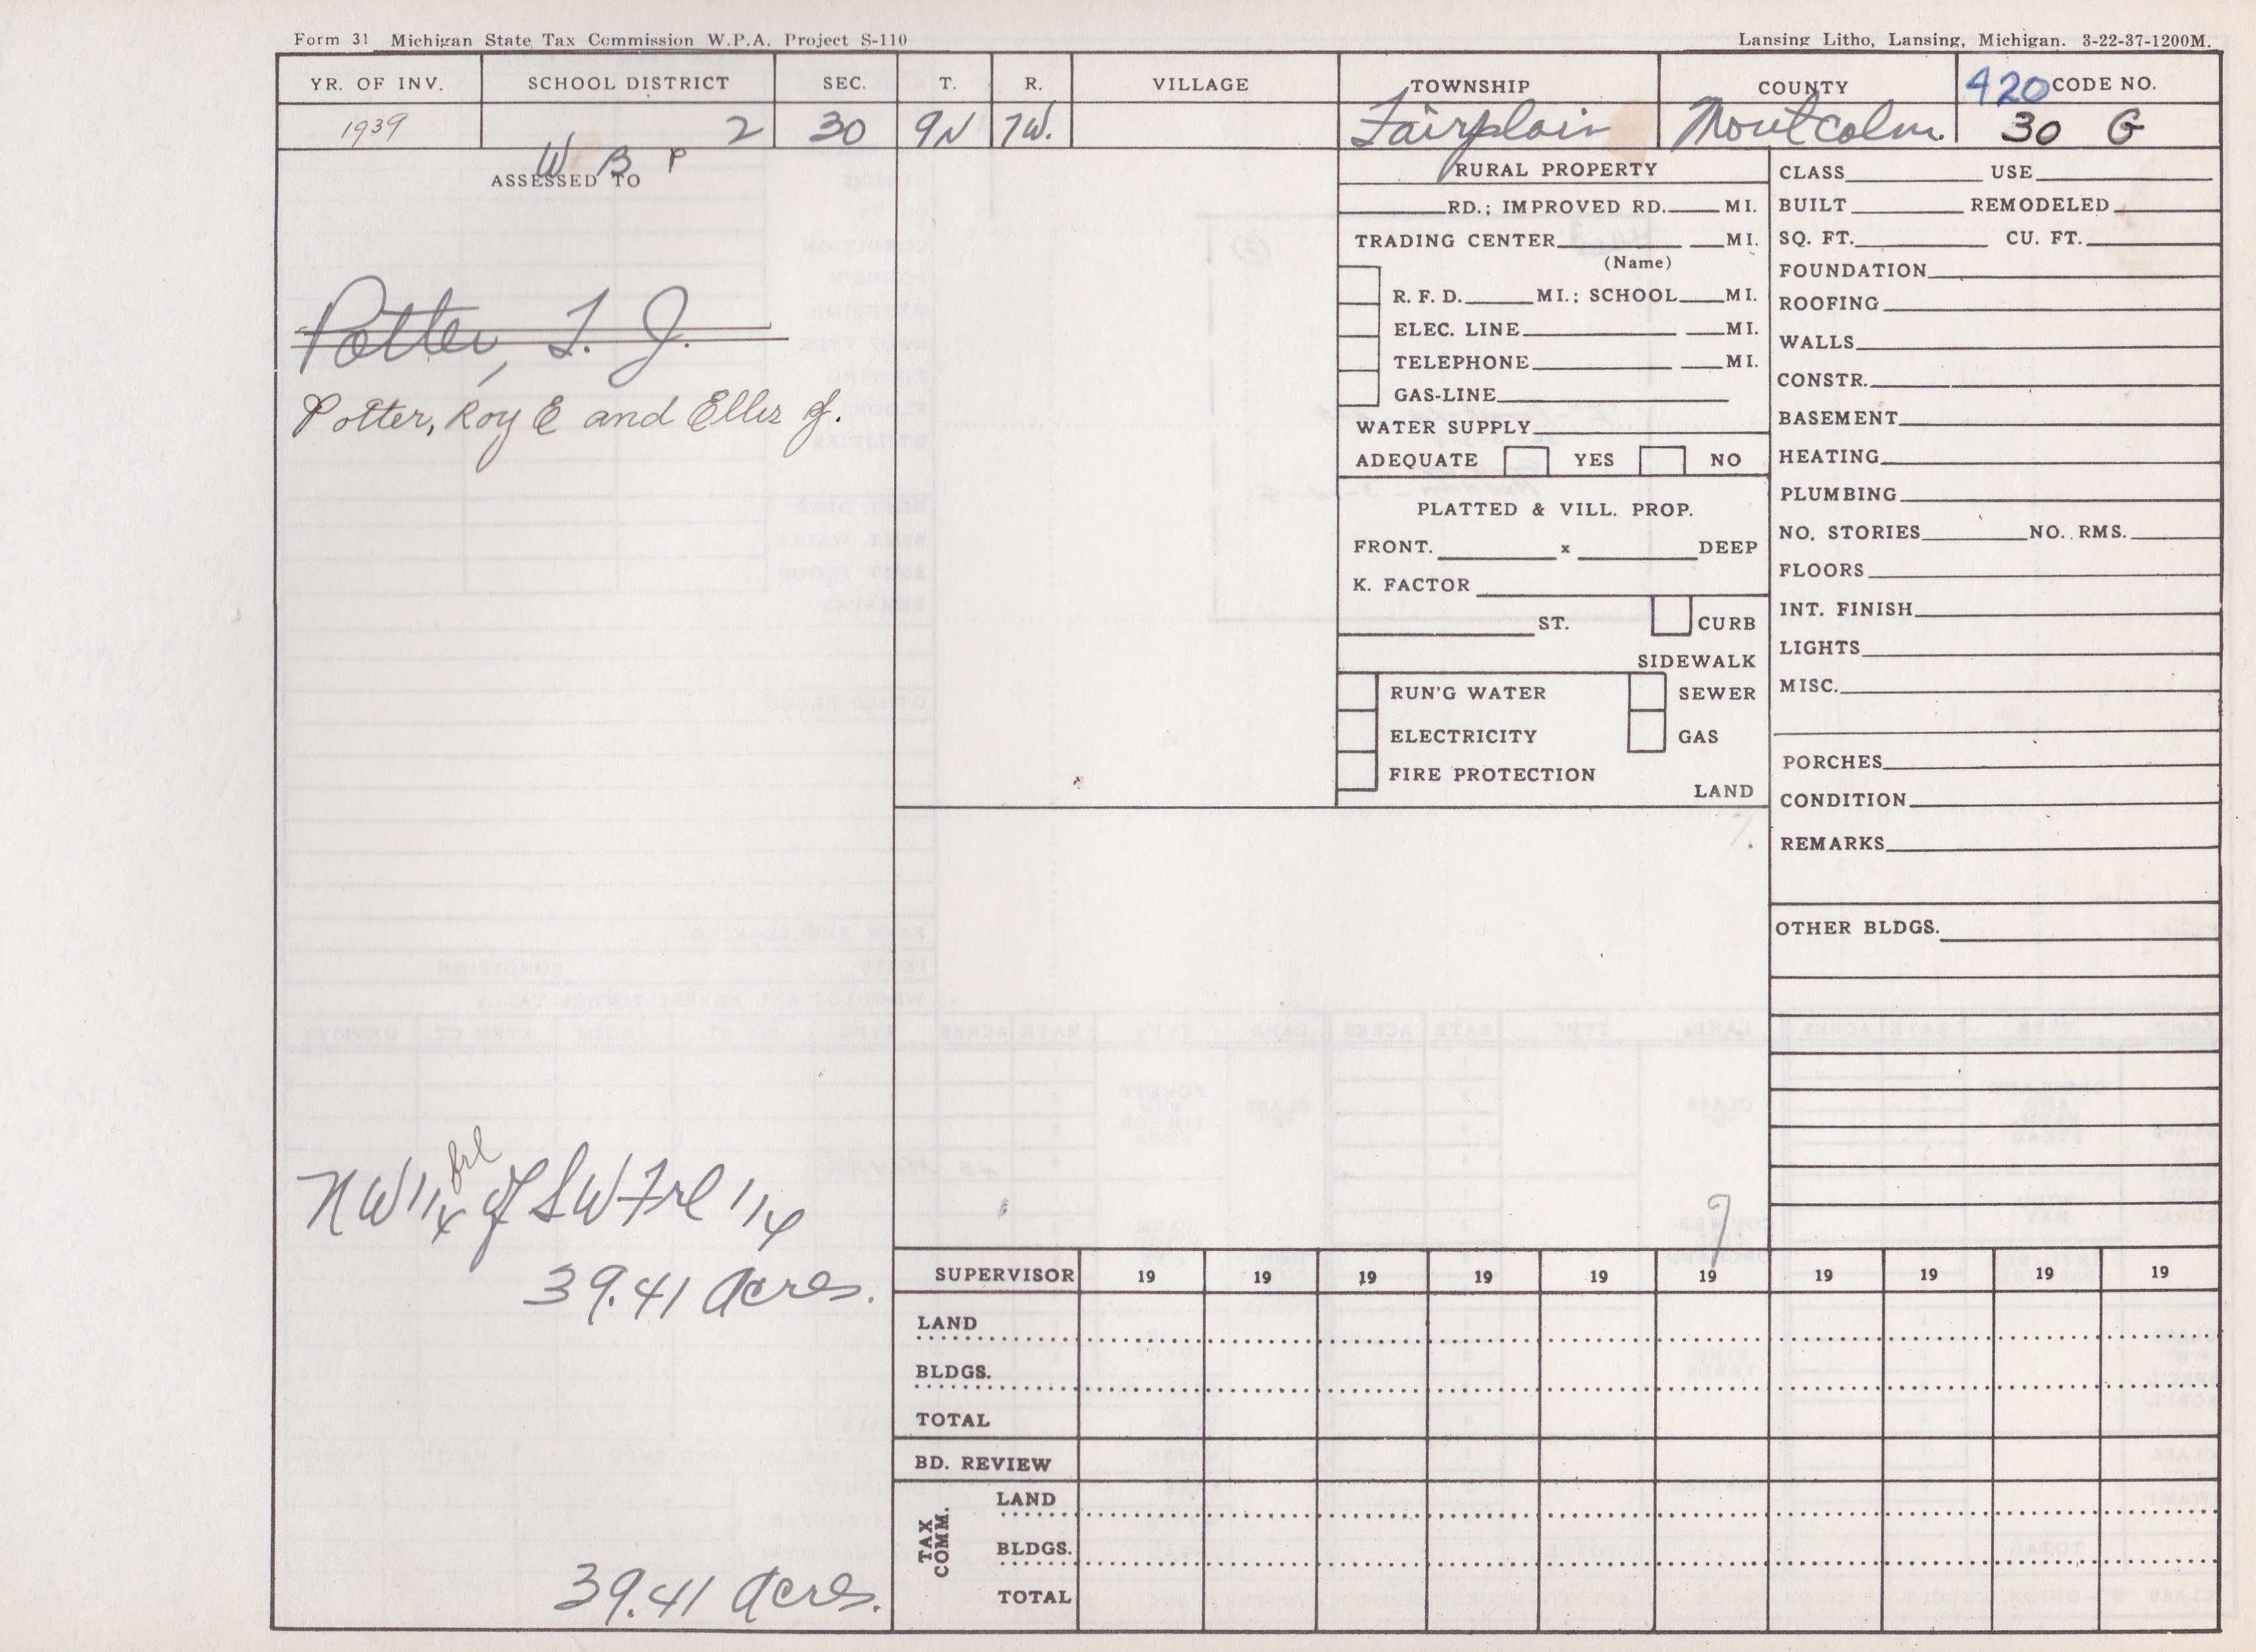 Form 31 Michigan State Tax Commission W.P.A. Project S-110
Lansing Litho, Lansing, Michigan. 3-22-37-1200M.
YR. OF INV. SCHOOL DISTRICT SEC. T. R. VILLAGE TOWNSHIP COUNTY 420 CODE NO.
1939 2 30 9N 7W. Fairplain Montcalm. 30 G
W B P
ASSESSED TO
Potter, T. J.
Potter, Roy E and Ellis J.
NW 1/4 frl of SW Frl 1/4
39.41 Acres.
39.41 Acres.
RURAL PROPERTY
RD.; IMPROVED RD. MI.
TRADING CENTER MI.
(Name)
R. F. D. MI.; SCHOOL MI.
ELEC. LINE MI.
TELEPHONE MI.
GAS-LINE
WATER SUPPLY
ADEQUATE YES NO
PLATTED & VILL. PROP.
FRONT. x DEEP
K. FACTOR
ST. CURB
SIDEWALK
RUN'G WATER SEWER
ELECTRICITY GAS
FIRE PROTECTION
LAND
CLASS USE
BUILT REMODELED
SQ. FT. CU. FT.
FOUNDATION
ROOFING
WALLS
CONSTR.
BASEMENT
HEATING
PLUMBING
NO. STORIES NO. RMS.
FLOORS
INT. FINISH
LIGHTS
MISC.
PORCHES
CONDITION
REMARKS
OTHER BLDGS.
SUPERVISOR 19 19 19 19 19 19 19 19 19 19
LAND
BLDGS.
TOTAL
BD. REVIEW
TAX COMM.
LAND
BLDGS.
TOTAL